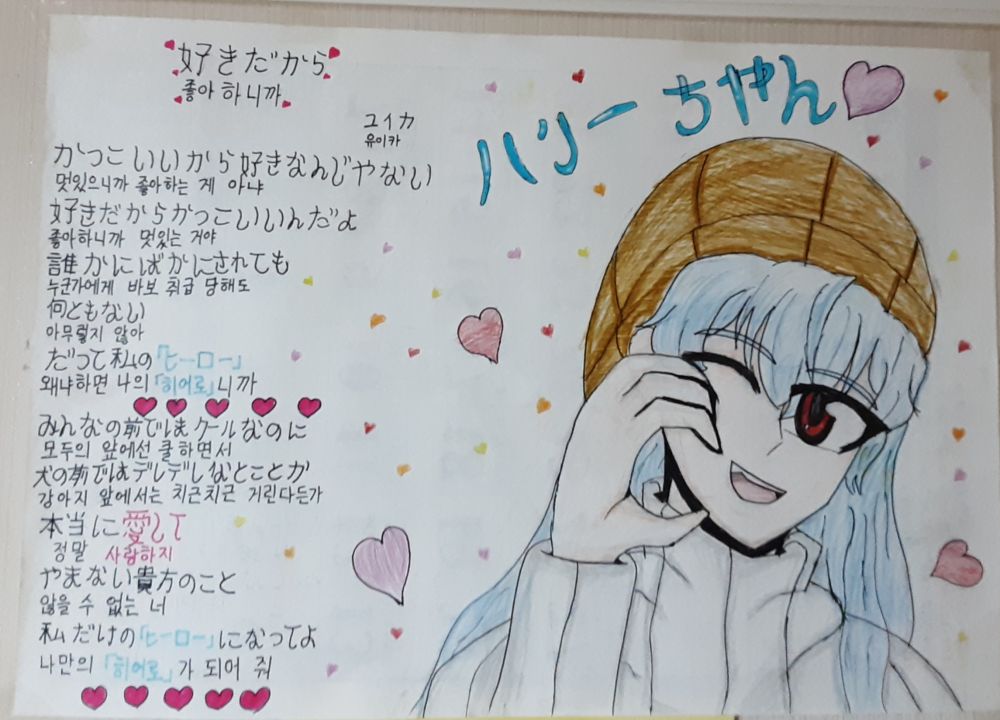 好きだから
좋아하니까
ユイカ
유이카
かっこいいから好きなんじゃない
멋있으니까 좋아하는 게 아냐
好きだからかっこいいんだよ
좋아하니까 멋있는 거야
誰かにばかにされても
누군가에게 바보 취급 당해도
何ともない
아무렇지 않아
だって私の「ヒーロー」
왜냐하면 나의 「히어로」니까
みんなの前ではクールなのに
모두의 앞에선 쿨하면서
犬の前ではデレデレなとことか
강아지 앞에서는 치근치근 거린다든가
本当に愛して
정말 사랑하지
やまない貴方のこと
않을 수 없는 너
私だけの「ヒーロー」になってよ
나만의 「히어로」가 되어 줘
ハリーちゃん